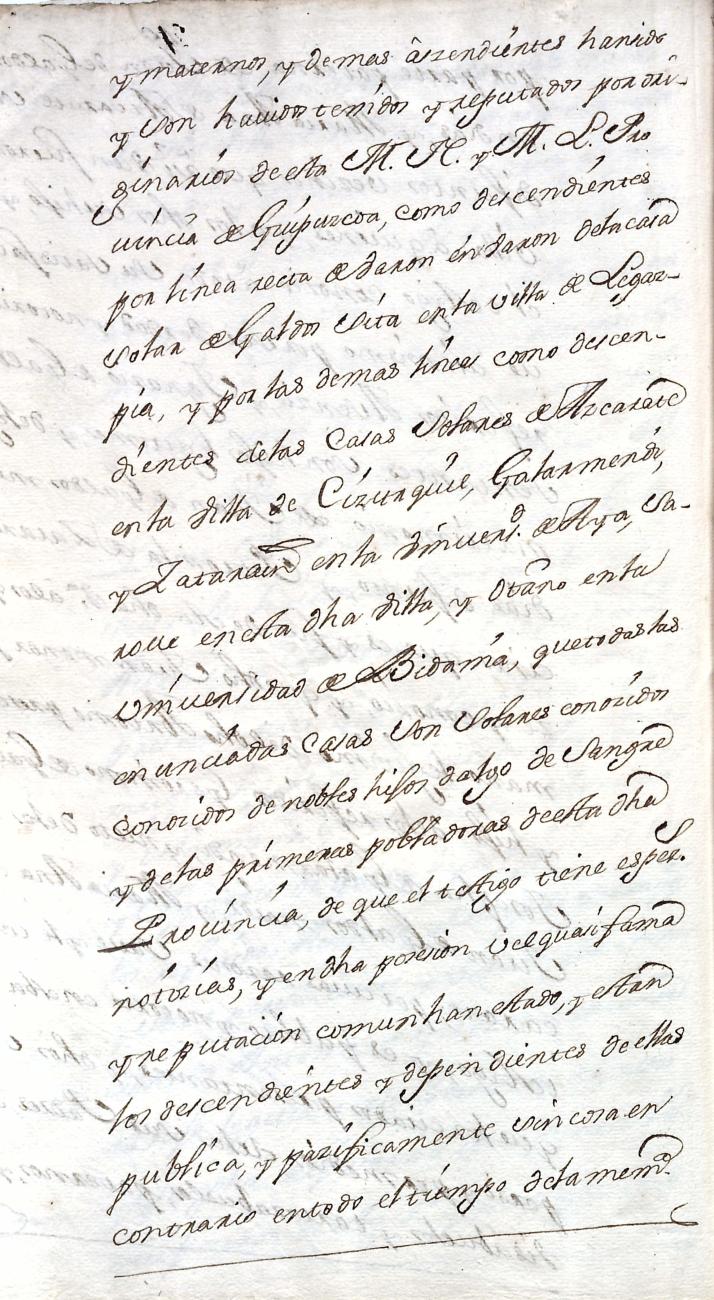 y maternos, y demas aszendientes hanido
y son hauidos tenidos y reputados por ori-
ginarios de esta M. N. y M. L. Pro
uincia de Guipuzcoa, como descendientes
por linea recta de baron en baron dela casa
solar de Galdos sita enla villa de Legaz-
pia, y por las demas lineas como descen-
dientes delas Casas Solares de Azcarate
enla Villa de Cizurquil, Galarmendi,
y Zatarain enla Vniuersd. de Aya, Sa-
roue enesta dha Villa, y Otaño enla
Vniuersidad de Bidania, que todas las
enunciadas Casas son Solares conozidos
conozidos de nobles hijos dalgo de Sangre
y delas primeras pobladoras de esta dha
Prouincia, de que el testigo tiene esper.s
notorias, y en dha posesion vel quasi fama
y reputacion comun han estado, y estan
los descendientes y dependientes de ellas
publica, y pazificamente sin cosa en
contrario entodo el tiempo dela mema.